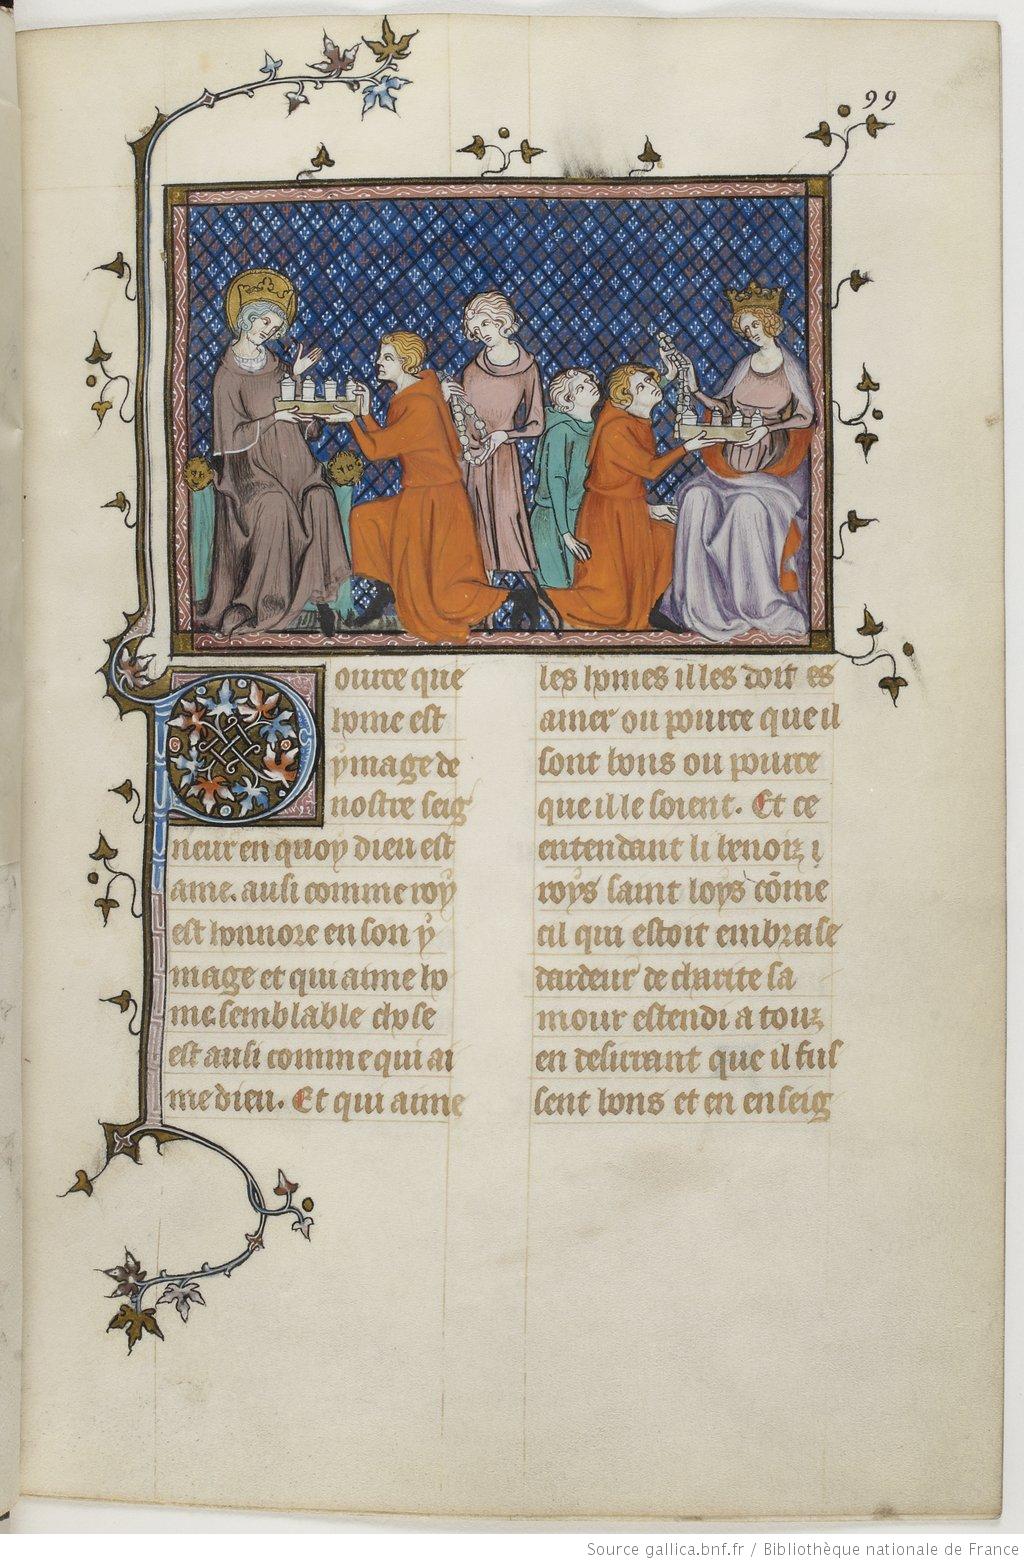 99
Pource que
home est
ymage de
nostre seig
neur en quoy dieu est
ame. ausi comme roy
est honnore en son y
mage et qui aime ho
me semblable chose
est ausi comme qui ai
me dieu. Et qui aime
les homes il les doit es
amer ou pource que il
sont bons ou pource
que il le soient. Et ce
entendant li benoiz
roys saint loys cōme
cil qui estoit embrase
dardeur de charite sa
mour estendi a touz
en desirrant que il fus
sent bons et en enseig
Source gallica.bnf.fr / Bibliothèque nationale de France